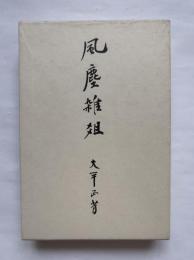 風塵雑俎
大平正芳